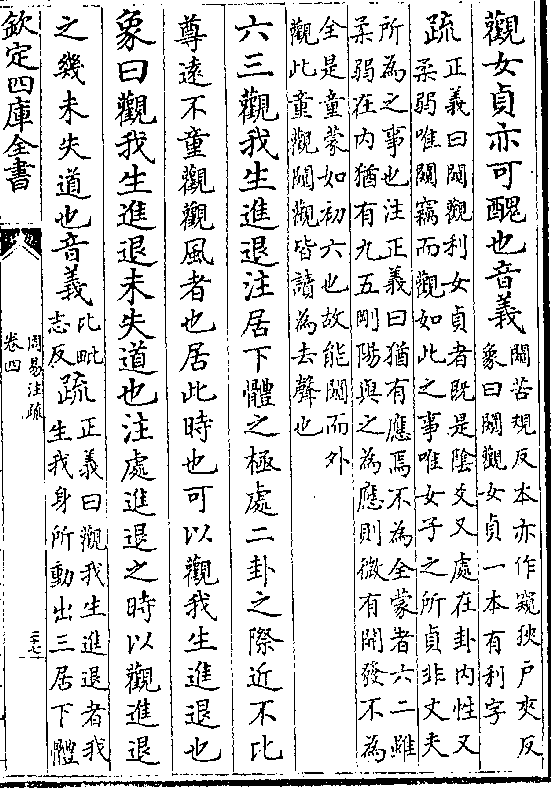 觀女貞亦可醜也音義闚苦規反本亦作窺狹戶夾反
象曰闚觀女貞一本有利字
疏正義曰闚觀利女貞者既是陰爻又處在卦内性又
柔弱唯闚竊而觀如此之事唯女子之所貞非丈夫
所為之事也注正義曰猶有應焉不為全蒙者六二雖
柔弱在内猶有九五剛陽與之為應則微有開發不為
全是童蒙如初六也故能闚而外
觀此童觀闚觀皆讀為去聲也
六三觀我生進退注居下體之極處二卦之際近不比
尊遠不童觀觀風者也居此時也可以觀我生進退也
象曰觀我生進退未失道也注處進退之時以觀進退
之幾未失道也音義比毗
志反疏正義曰觀我生進退者我
生我身所動出三居下體
欽定四庫全書
周易注疏
卷四
三十七